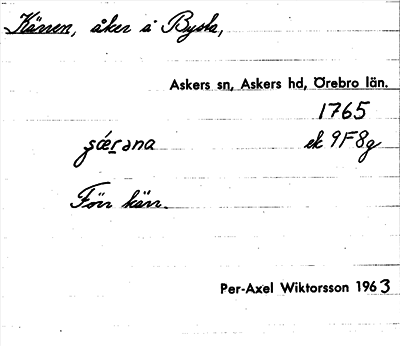 Kärren, åker å Bysta,
Askers sn, Askers hd, Örebro län.
1765
ek 9F8g
Förr kärr.
Per-Axel Wiktorsson 1963